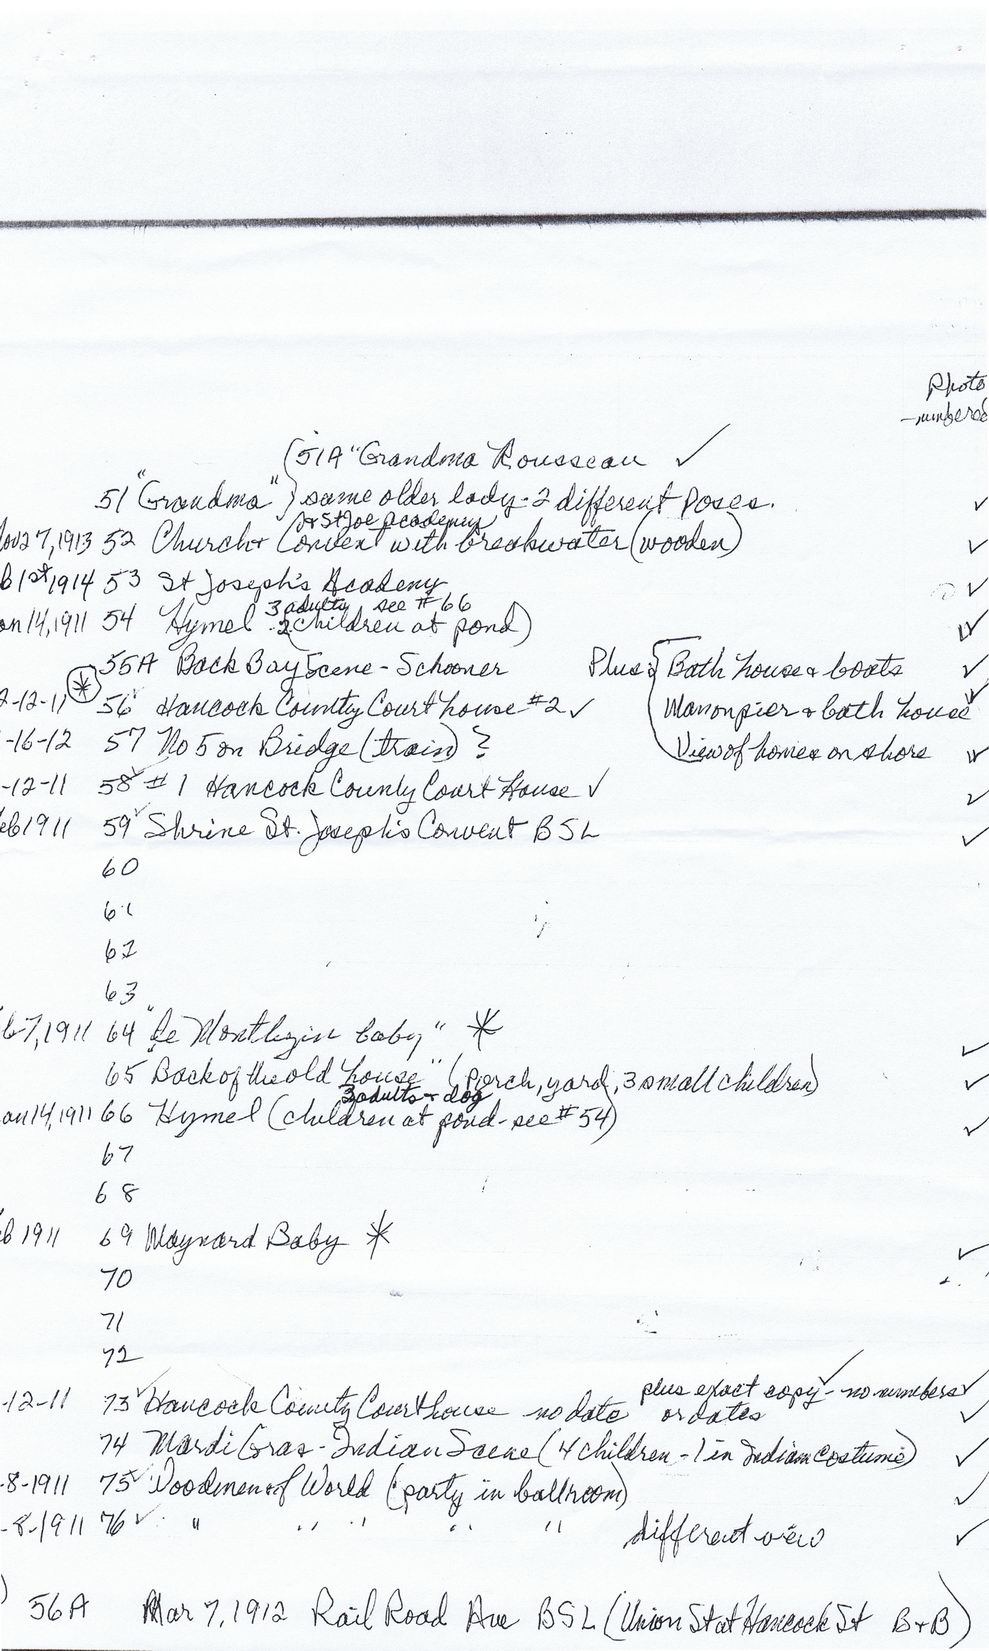 Photo
-numbered
(51A "Grandma Rousseau ✓
51 "Grandma" } same older lady - 2 different poses. ✓
& St Joe Academy
Nov 27, 1913 52 Church + Convent with breakwater (wooden) ✓
b 1st 1914 53 St Joseph's Academy ✓
3 adults see #66
an 14, 1911 54 Hymel 2 (children at pond) ✓
55A Back Bay Scene - Schooner Plus { Bath house & boats ✓
2-12-11 * 56 Hancock County Court house #2 ✓ Man on pier & bath house ✓
-16-12 57 No 5 on Bridge (train) ? View of homes on shore ✓
-12-11 58 ✓ #1 Hancock County Court House ✓ ✓
eb 1911 59 ✓ Shrine St. Joseph's Convent BSL ✓
60
61
62
63
b 7, 1911 64 "De Montluzin baby" * ✓
65 "Back of the old house" (porch, yard, 3 small children) ✓
3 adults + dog
an 14, 1911 66 Hymel (children at pond - see #54) ✓
67
68
eb 1911 69 Maynard Baby * ✓
70
71
72
plus exact copy - no numbers ✓
-12-11 73 ✓ Hancock County Courthouse no date or dates ✓
74 Mardi Gras - Indian Scene (4 children - 1 in Indian costume) ✓
-8-1911 75 ✓ Woodmen of World (party in ballroom) ✓
-8-1911 76 ✓ " " " " " different view ✓
) 56A Mar 7, 1912 Rail Road Ave BSL (Union St at Hancock St B+B)